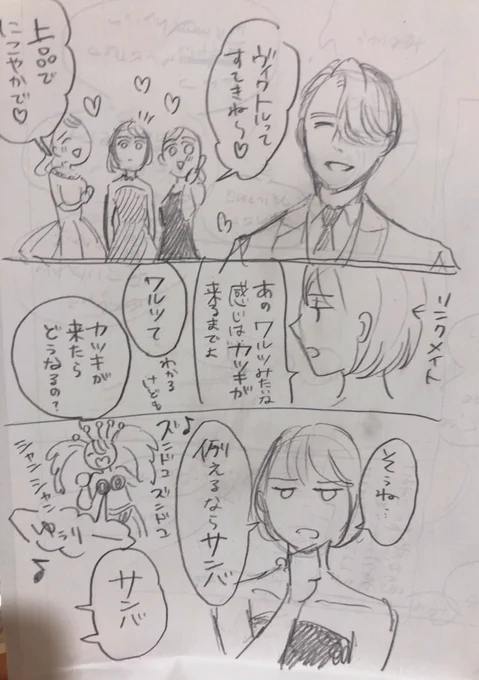 ヴィクトルって
すてきね〜♡
上品で
にこやかで♡
リンクメイト
あのワルツみたいな
感じはカツキが
来るまでよ
ワルツて
わかる
けども
カツキが
来たら
どうなるの?
そうね…
例えるならサンバ
ズンドコズンドコ
シャンシャン
ゆらり
サンバ